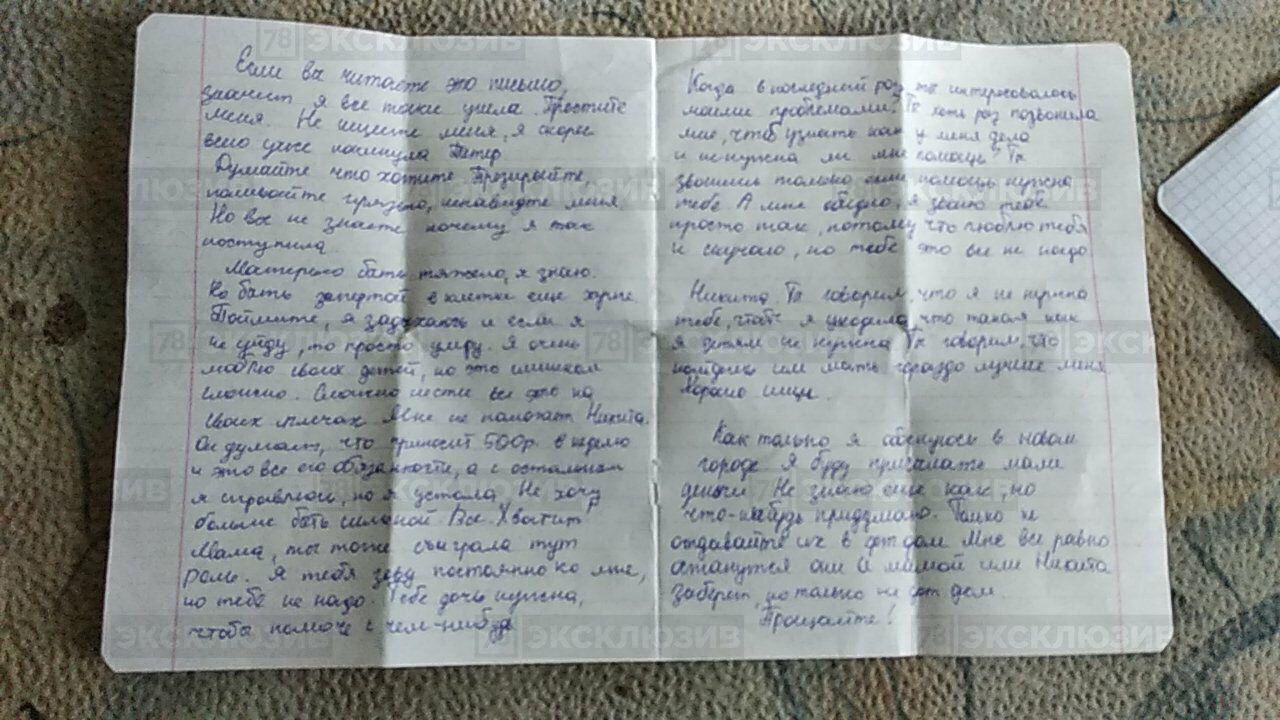 Если вы читаете это письмо,
значит, я все таки ушла. Простите
меня. Не ищите меня, я скорее
всего уже покинула Питер
Думайте что хотите. Презирайте
поливайте грязью, ненавидте меня
Но вы не знаете почему я так
поступила.
Матерью быть тяжело, я знаю.
Но быть запертой в клетке еще хуже.
Поймите, я задыхаюсь и если я
не уйду, то просто умру. Я очень
люблю своих детей, но это слишком
сложно. Сложно нести все это на
своих плечах Мне не помогает Никита.
Он думает, что приносит 500р. в неделю
и это все его обязанности, а с остальным
я справлюсь, но я устала. Не хочу
больше быть сильной. Все. Хватит
Мама, ты тоже сыграла тут
роль. Я тебя зову постоянно ко мне,
но тебе не надо. Тебе дочь нужна,
чтобы помочь с чем-нибудь
Когда в последний раз ты интересовалась
моими проблемами? Ты хоть раз позвонила
мне, чтоб узнать как у меня дела
и не нужна ли мне помощь? Ты
звонишь только если помощь нужна
тебе. А мне обидно, я звоню тебе
просто так, потому что люблю тебя
и скучаю, но тебе это все не надо
Никита. Ты говорил, что я не нужна
тебе, чтоб я уходила, что такая как
я детям не нужна Ты говорил, что
найдешь им мать гораздо лучше меня
Хорошо ищи.
Как только я обоснуюсь в новом
городе я буду присылать маме
деньги. Не знаю еще как, но
что-нибудь придумаю. Только не
отдавайте их в дет дом Мне все равно
останутся они с мамой или Никита
заберет, но только не дет дом.
Прощайте!
78 ЭКСКЛЮЗИВ